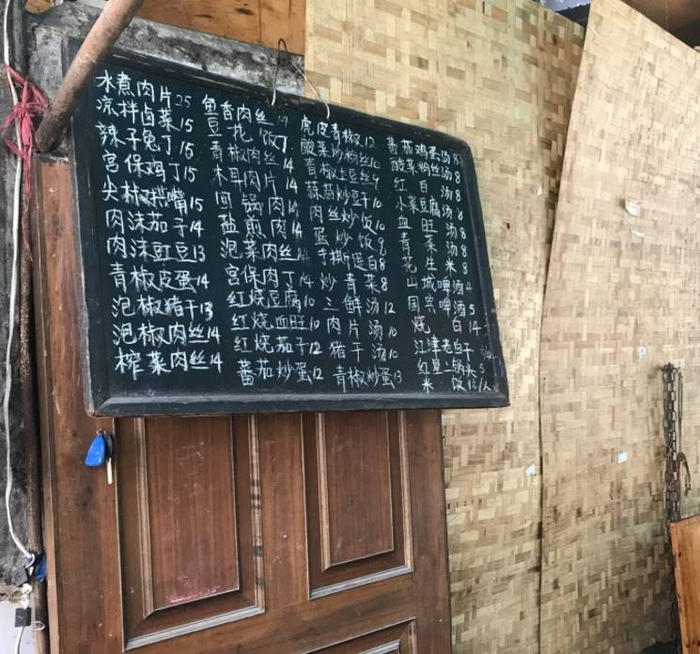 水煮肉片25
凉拌卤菜15
辣子兔丁16
宫保鸡丁15
尖椒拱嘴15
肉沫茄子14
肉沫豇豆13
青椒皮蛋14
泡椒猪干13
泡椒肉丝14
榨菜肉丝14
鱼香肉丝
豆花饭7
青椒肉丝14
木耳肉片14
回锅肉14
盐煎肉14
泡菜肉丝14
宫保肉丁14
红烧豆腐10
红烧血旺10
红烧茄子12
蕃茄炒蛋12
虎皮青椒12
酸菜炒粉丝10
青椒土豆丝9
蒜苗炒豆干10
肉丝炒饭10
蛋炒饭9
手撕莲白8
炒青菜8
三鲜汤12
肉片汤10
猪干汤10
青椒炒蛋13
蕃茄鸡蛋汤8
酸菜粉丝汤8
红白汤8
小菜豆腐汤8
血旺汤8
青菜汤8
花生米8
山城啤酒4
国宾啤酒5
烧白14
江津老白干
红星二锅头5
米饭